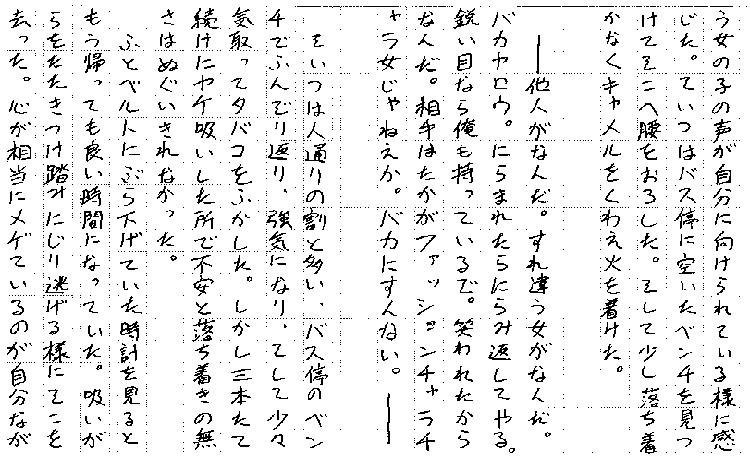 う女の子の声が自分に向けられている様に感
じた。ていつはバス停に空いたベンチを見つ
けてそこへ腰をおろした。そして少し落ち着
かなくキャメルをくわえ火を着けた。
――他人がなんだ。すれ違う女がなんだ。
バカヤロウ。にらまれたらにらみ返してやる。
鋭い目なら俺も持っているで。笑われたから
なんだ。相手はたかがファッションチャラチ
ャラ女じゃねえか。バカにすんない。――
そいつは人通りの割と多い、バス停のベン
チでふんぞり返り、強気になり、そして少々
気取ってタバコをふかした。しかし三本たて
続けにヤケ吸いした所で不安と落ち着きの無
さはぬぐいきれなかった。
ふとベルトにぶら下げていた時計を見ると
もう帰っても良い時間になっていた。吸いが
らをたたきつけ踏みにじり逃げる様にそこを
去った。心が相当にメゲているのが自分なが